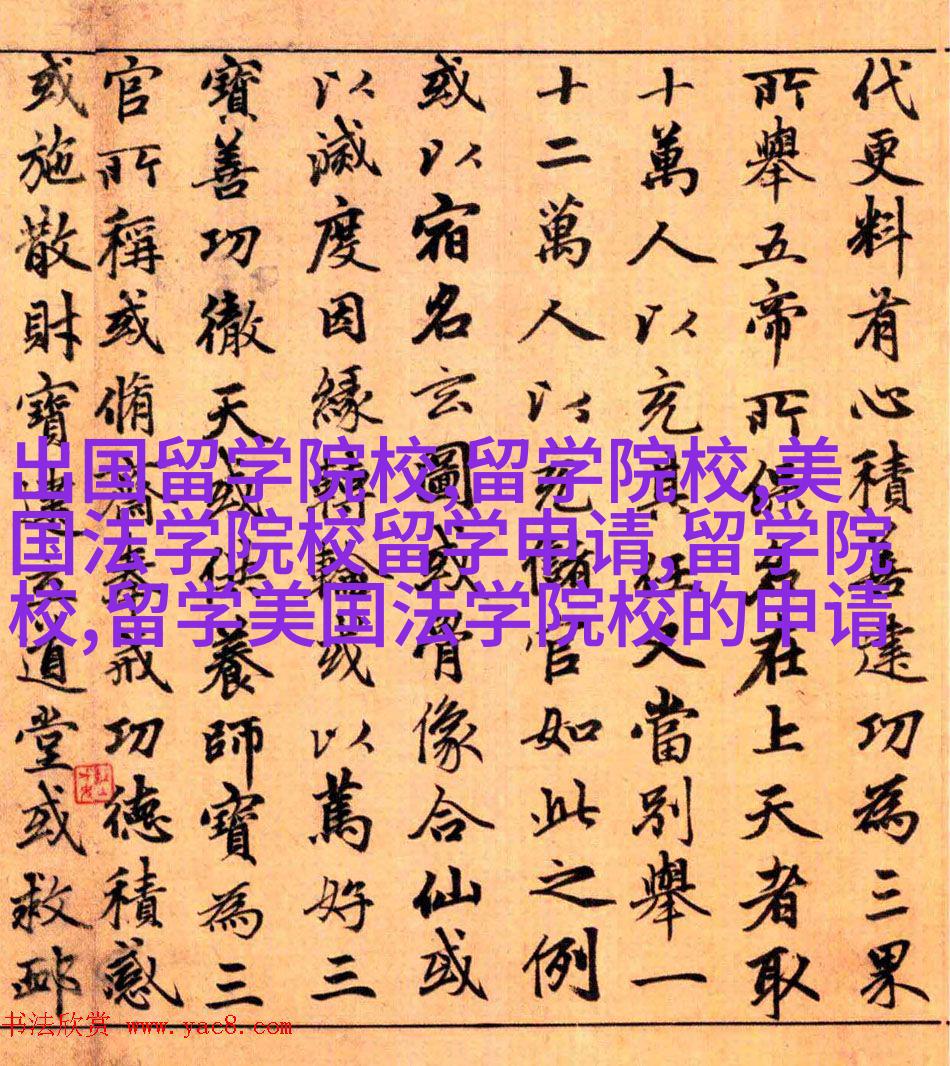 代更料有心積善建功為三果
所舉五帝所保名在上天者取
十萬人以充其任又當別舉一
十二萬人以充儲官如此之例
或以宿名玄圖或骨像合仙或
以滅度因緣轉輪或以篤好三
寶善功徹天或供養師寶為三
官所稱或脩齋奉戒功德積感
或施散財寶建立道堂或救卹
出国留学院校,留学院校,美
国法学院校留学申请,留学院
校,留学美国法学院校的申请
书法欣赏 www.yac8.com